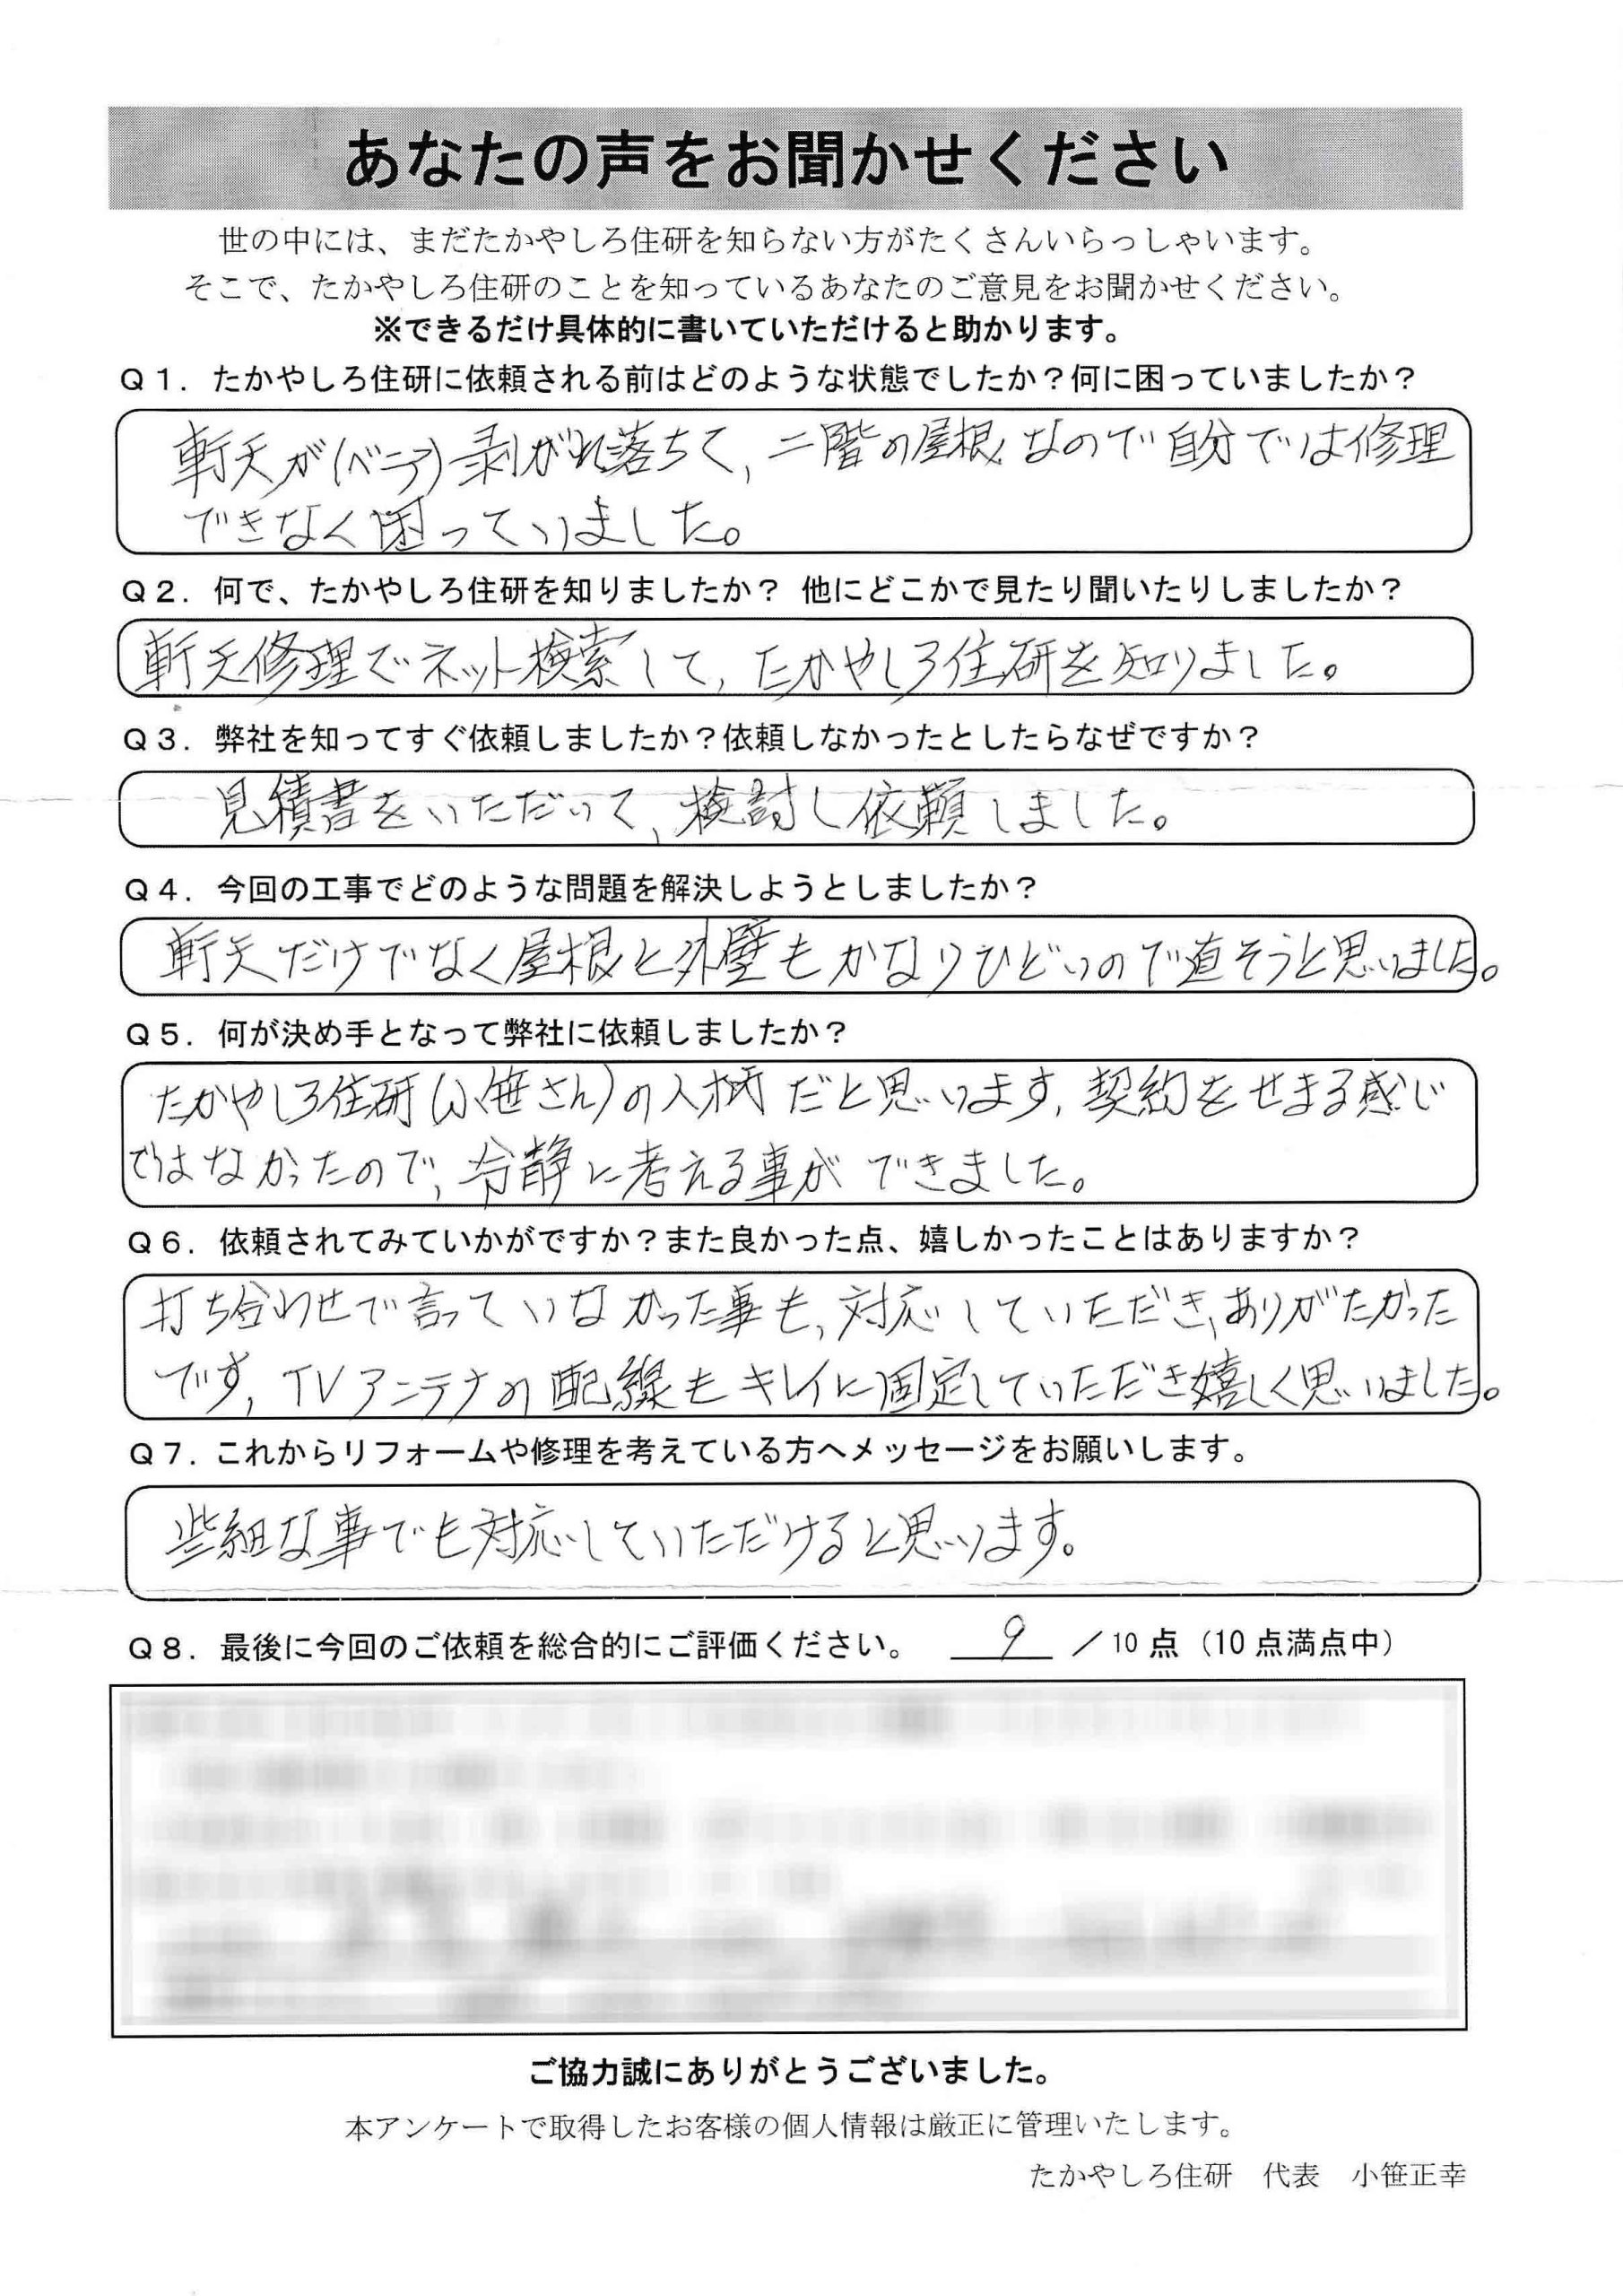 あなたの声をお聞かせください
世の中には、まだたかやしろ住研を知らない方がたくさんいらっしゃいます。
そこで、たかやしろ住研のことを知っているあなたのご意見をお聞かせください。
※できるだけ具体的に書いていただけると助かります。
Q1．たかやしろ住研に依頼される前はどのような状態でしたか？何に困っていましたか？
軒天が(ベニア)剥がれ落ちて、二階の屋根なので自分では修理
できなく困っていました。
Q2．何で、たかやしろ住研を知りましたか？ 他にどこかで見たり聞いたりしましたか？
軒天修理でネット検索して、たかやしろ住研を知りました。
Q3．弊社を知ってすぐ依頼しましたか？依頼しなかったとしたらなぜですか？
見積書をいただいて、検討し依頼しました。
Q4．今回の工事でどのような問題を解決しようとしましたか？
軒天だけでなく屋根と外壁もかなりひどいので直そうと思いました。
Q5．何が決め手となって弊社に依頼しましたか？
たかやしろ住研(小笹さん)の人柄だと思います、契約をせまる感じ
ではなかったので、冷静に考える事ができました。
Q6．依頼されてみていかがですか？また良かった点、嬉しかったことはありますか？
打ち合わせで言っていなかった事も、対応していただき、ありがたかった
です、TVアンテナの配線もキレイに固定していただき嬉しく思いました。
Q7．これからリフォームや修理を考えている方へメッセージをお願いします。
些細な事でも対応していただけると思います。
Q8．最後に今回のご依頼を総合的にご評価ください。 9 ／10点（10点満点中）
ご協力誠にありがとうございました。
本アンケートで取得したお客様の個人情報は厳正に管理いたします。
たかやしろ住研　代表　小笹正幸